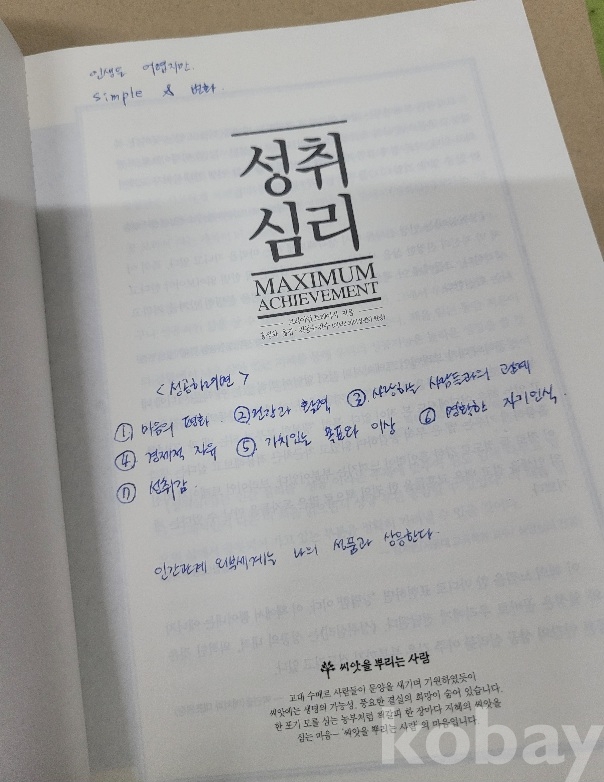 인생은 어렵지만.
simple & 변화.
성취
심리
MAXIMUM
ACHIEVEMENT
<성공하려면>
① 마음의 평화. ② 건강과 활력 ③ 사랑하는 사람들과의 관계
④ 경제적 자유 ⑤ 가치있는 목표와 이상 ⑥ 명확한 자기인식.
⑦ 성취감.
인간관계 외부세계는 나의 성품과 상응한다.
씨앗을 뿌리는 사람
고대 수메르 사람들이 문양을 새기며 기원하였듯이
씨앗에는 생명의 가능성, 풍요한 결실의 희망이 숨어 있습니다.
한 포기 모를 심는 농부처럼 책갈피 한 장마다 지혜의 씨앗을
심는 마음— '씨앗을 뿌리는 사람'의 마음입니다.
kobay